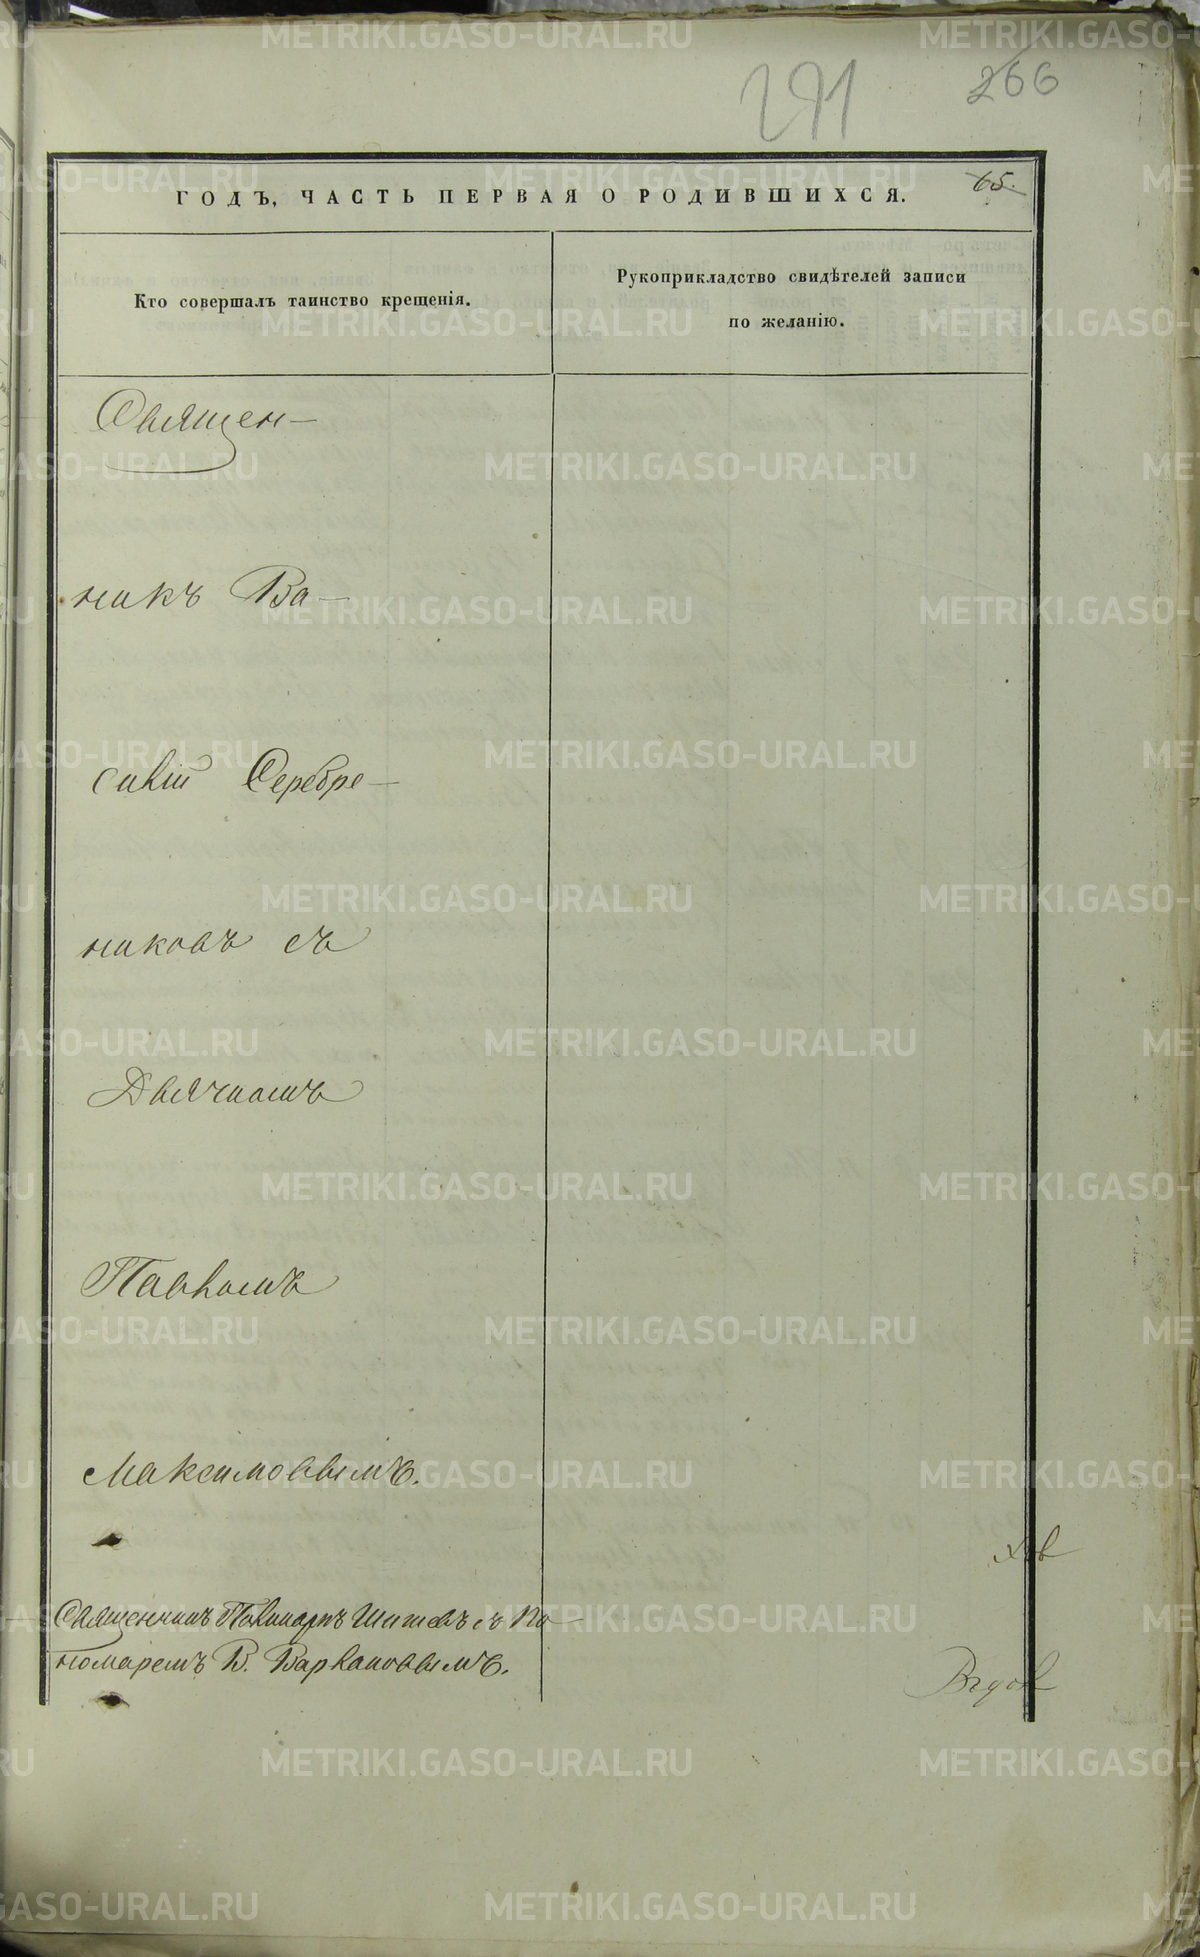 291
266
65.
ГОДЪ, ЧАСТЬ ПЕРВАЯ О РОДИВШИХСЯ.
Кто совершалъ таинство крещенія.
Рукоприкладство свидѣтелей записи
по желанію.
Священ-
никъ Ва-
силій Серебре-
никовъ съ
Дьячкомъ
Павломъ
Максимовымъ.
Священникъ Шишевъ съ По-
номаремъ В. Варлаковымъ.
METRIKI.GASO-URAL.RU